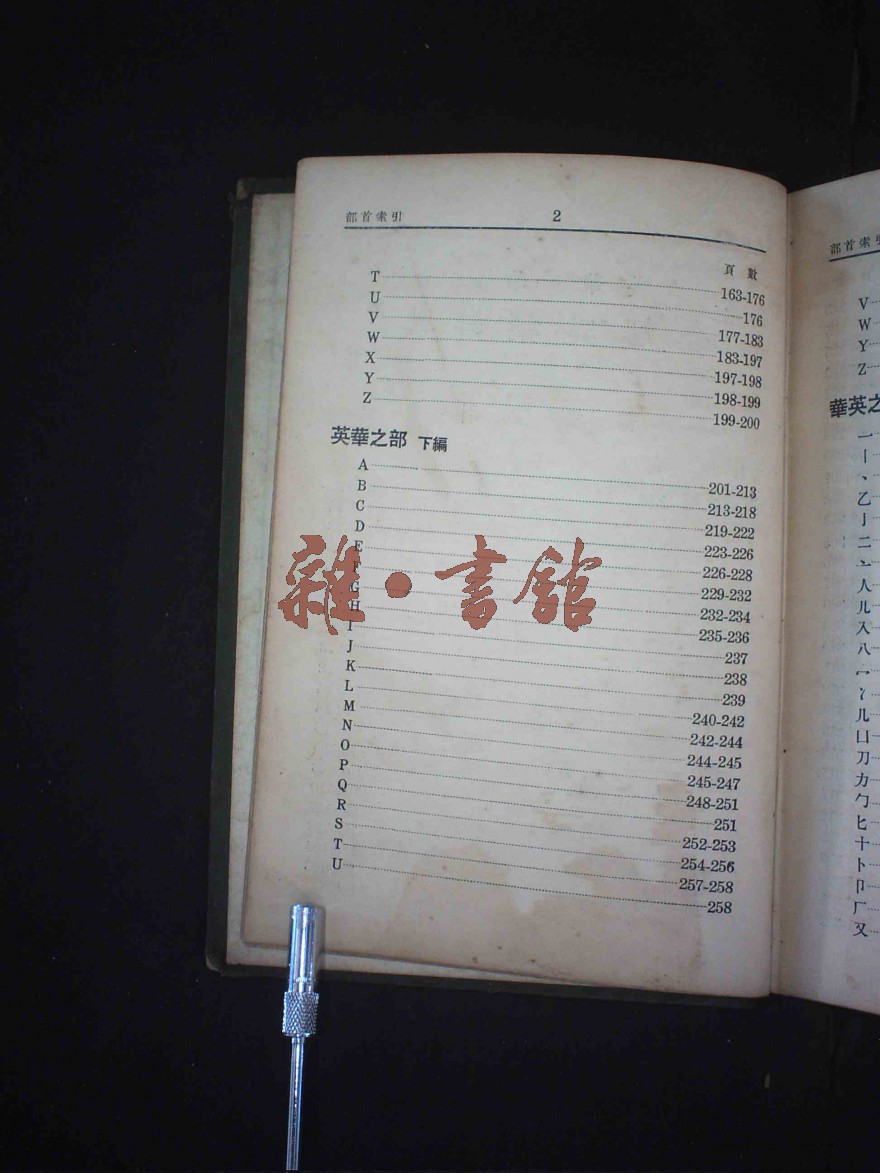 部首索引 2
頁數
T 163-176
U 176
V 177-183
W 183-197
X 197-198
Y 198-199
Z 199-200
英華之部 下編
A 201-213
B 213-218
C 219-222
D 223-226
E 226-228
F 229-232
G 232-234
H 235-236
I 237
J 238
K 239
L 240-242
M 242-244
N 244-245
O 245-247
P 248-251
Q 251
R 252-253
S 254-256
T 257-258
U 258
雜·書館
部首索
V
W
Y
Z
華英之
一
丨
丶
乙
亅
二
亠
人
儿
入
八
冖
冫
几
凵
刀
力
勹
匕
十
卜
卩
厂
又